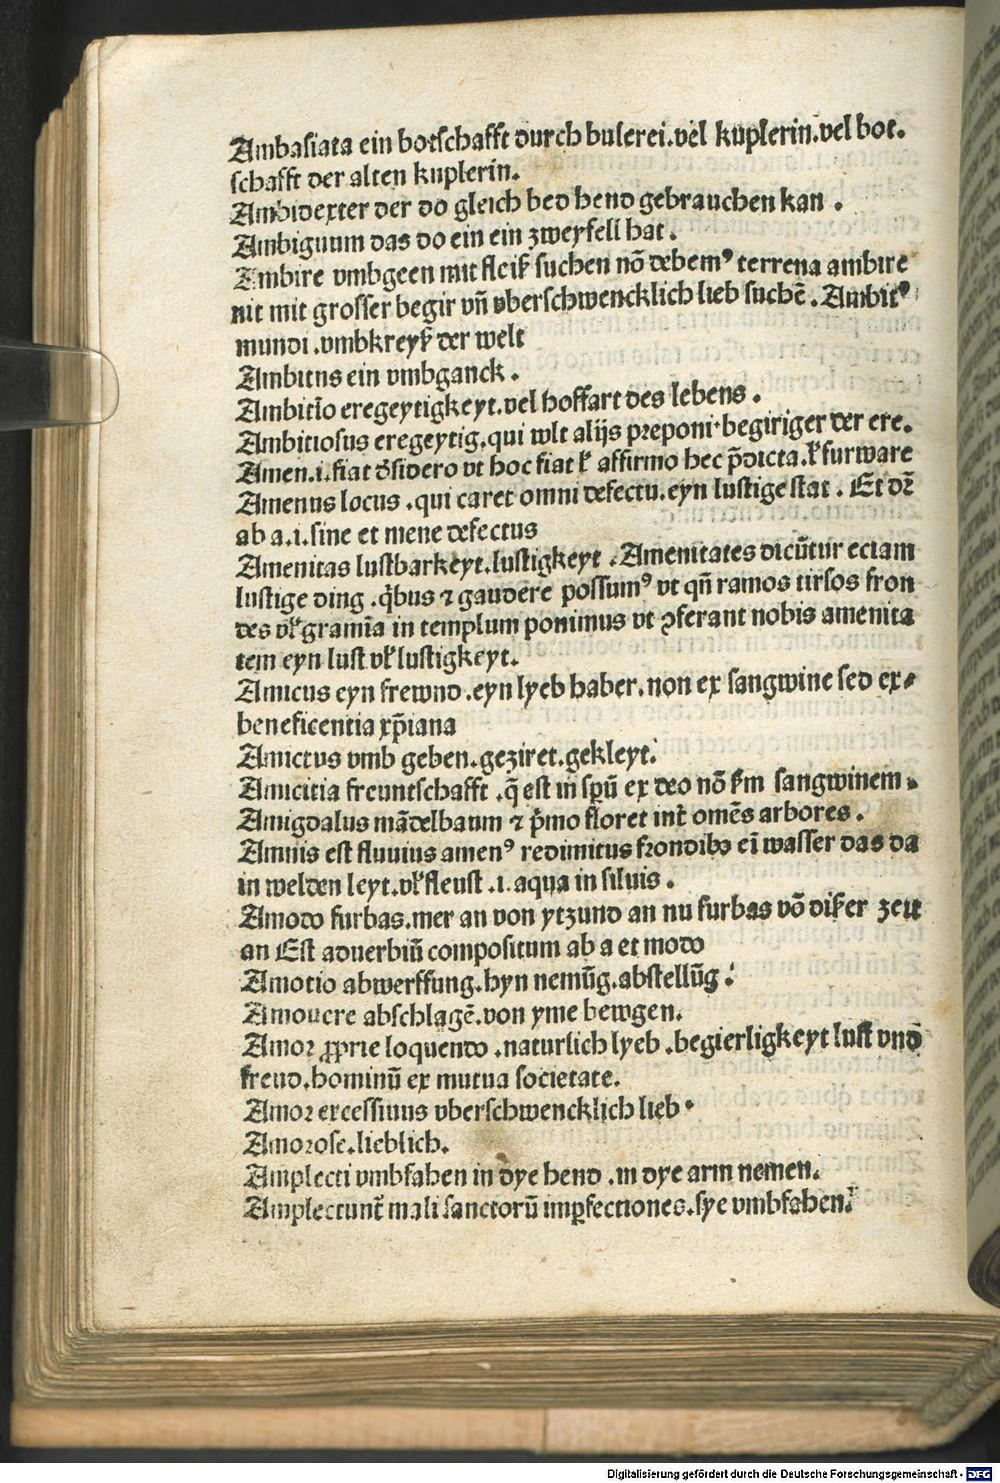 Ambasiata ein botschafft durch bulerei.vel kuplerin.vel bot.
schafft der alten kuplerin.
Ambidexter der do gleich bed hend gebrauchen kan .
Ambiguum das do ein ein zweyfell hat .
Ambire vmbgeen mit fleiß suchen nō debemꝰ terrena ambire
nit mit grosser begir vñ vberschwencklich lieb suchē . Ambitꝰ
mundi .vmbkreyß der welt
Ambitus ein vmbganck .
Ambitio eregeytigkeyt.vel hoffart des lebens .
Ambitiosus eregeytig.qui wlt alijs preponi.begiriger der ere.
Amen.i.fiat desidero vt hoc fiat affirmo hec p̄dicta. furware
Amenus locus .qui caret omni defectu.eyn lustige stat . Et dr̄
ab a.i.sine et mene defectus
Amenitas lustbarkeyt.lustigkeyt .Amenitates dicūtur eciam
lustige ding .qibus ⁊ gaudere possumꝰ vt qñ ramos tirsos fron
des gramīa in templum ponimus vt ꝯferant nobis amenita
tem eyn lust lustigkeyt.
Amicus eyn frewnd .eyn lyeb haber.non ex sangwine sed ex⸗
beneficentia xp̄iana
Amictus vmb geben.geziret.gekleyt.
Amicitia freuntschafft .q̄ est in spū ex deo nō sangwinem .
Amigdalus mādelbaum ⁊ pimo floret int̄ omēs arbores .
Amnis est fluuius amenꝰ redimitus frondibꝰ ei wasser das da
in welden leyt. fleust .i.aqua in siluis .
Amodo furbas.mer an von ytzund an nu furbas vō dißer zeit
an Est aduerbiū compositum ab a et modo
Amotio abwerffung.hyn nemūg.abstellūg .
Amouere abschlagē.von yme bewgen.
Amor ꝓprie loquendo .naturlich lyeb .begierligkeyt lust vnd
freud.hominū ex mutua societate.
Amor excessiuus vberschwencklich lieb.
Amorose.lieblich.
Amplecti vmbfahen in dye hend .in dye arm nemen.
Amplectunt̄ mali sanctorū imꝑfectiones.sye vmbfahen.
Digitalisierung gefördert durch die Deutsche Forschungsgemeinschaft - DFG